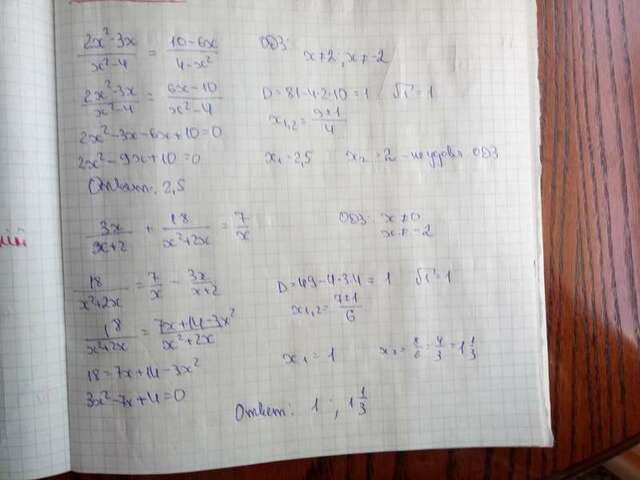 2x²-3x / x²-4 = 10-6x / 4-x²   ОДЗ: x≠2; x≠-2
2x²-3x / x²-4 = 6x-10 / x²-4   D=81-4·2·10=1   √1=1
2x²-3x-6x+10=0   x₁,₂ = 9±1 / 4
2x²-9x+10=0   x₁=2,5   x₂=2 - не удовл. ОДЗ
Ответ: 2,5
3x / x+2 + 18 / x²+2x = 7 / x   ОДЗ: x≠0
x≠-2
18 / x²+2x = 7 / x - 3x / x+2   D=49-4·3·4=1   √1=1
18 / x²+2x = 7x+14-3x² / x²+2x   x₁,₂ = 7±1 / 6
18=7x+14-3x²   x₁=1   x₂= 8/6 = 4/3 = 1 1/3
3x²-7x+4=0
Ответ: 1; 1 1/3